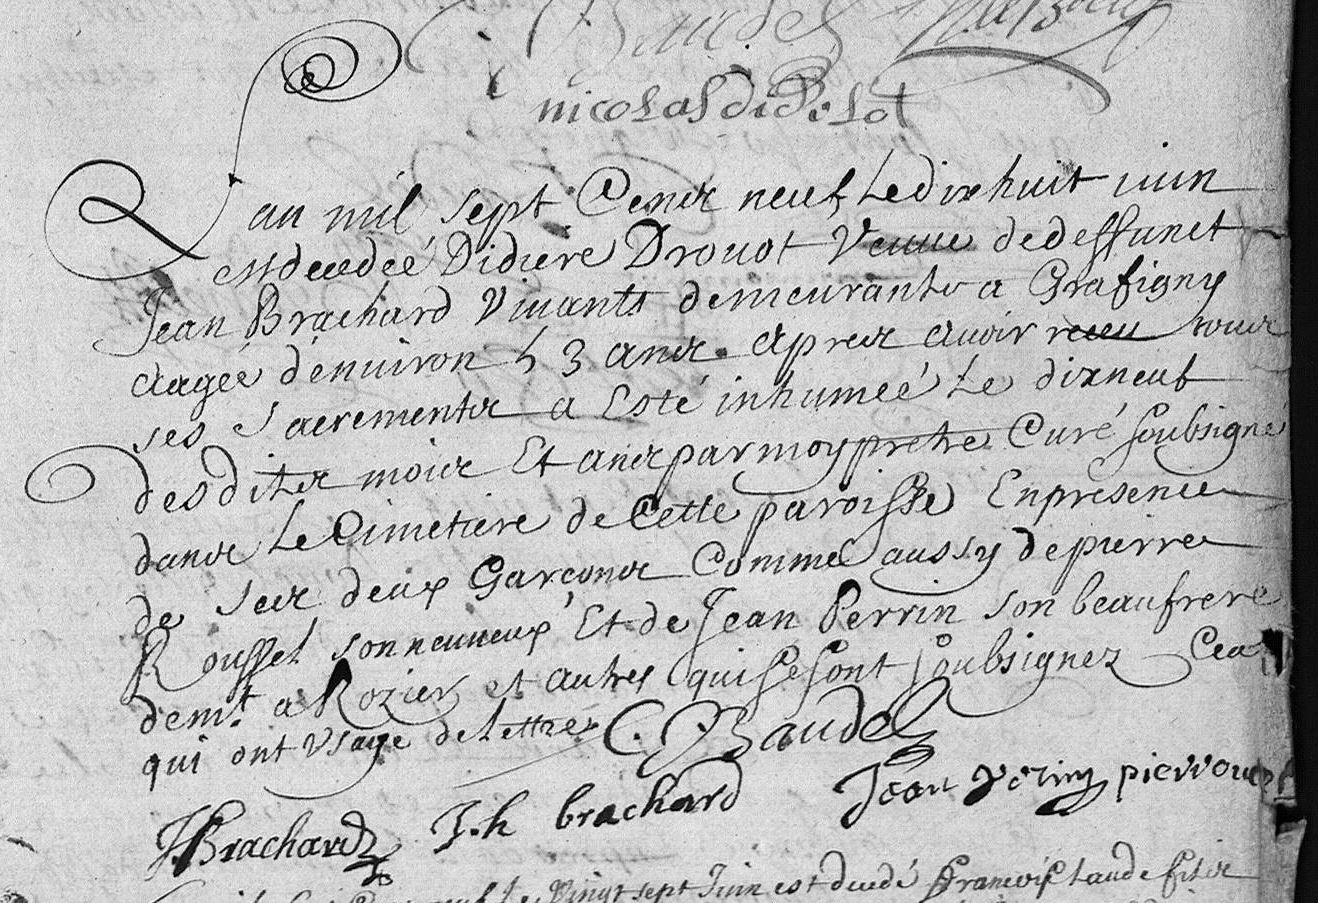 nicolas didelot
L an mil sept Cents neuf Le dix huit iuin
est decedeé Didiere Drouot Veuue de deffunct
Jean Brachard Viuants demeurante a Grafigny
aageé d'enuiron 53 ans. apres auoir receu tous
ses Sacrements a Esté inhumeé Le dixneuf
desdites mois Et ans par moy pretre Curé soubsigné
dans Le Cimetiere de Cette paroisse En presence
de ses deux Garçons Comme aussy de pierre
Roussel son neuueux Et de Jean Perrin son beaufrere
demt. a Rozier et autres qui se sont soubsignez Ceux
qui ont Vsage de Lettres C. Baudel
J Brachard J. h brachard Jean perin pierrou
Vingt sept Juin est decedé francois